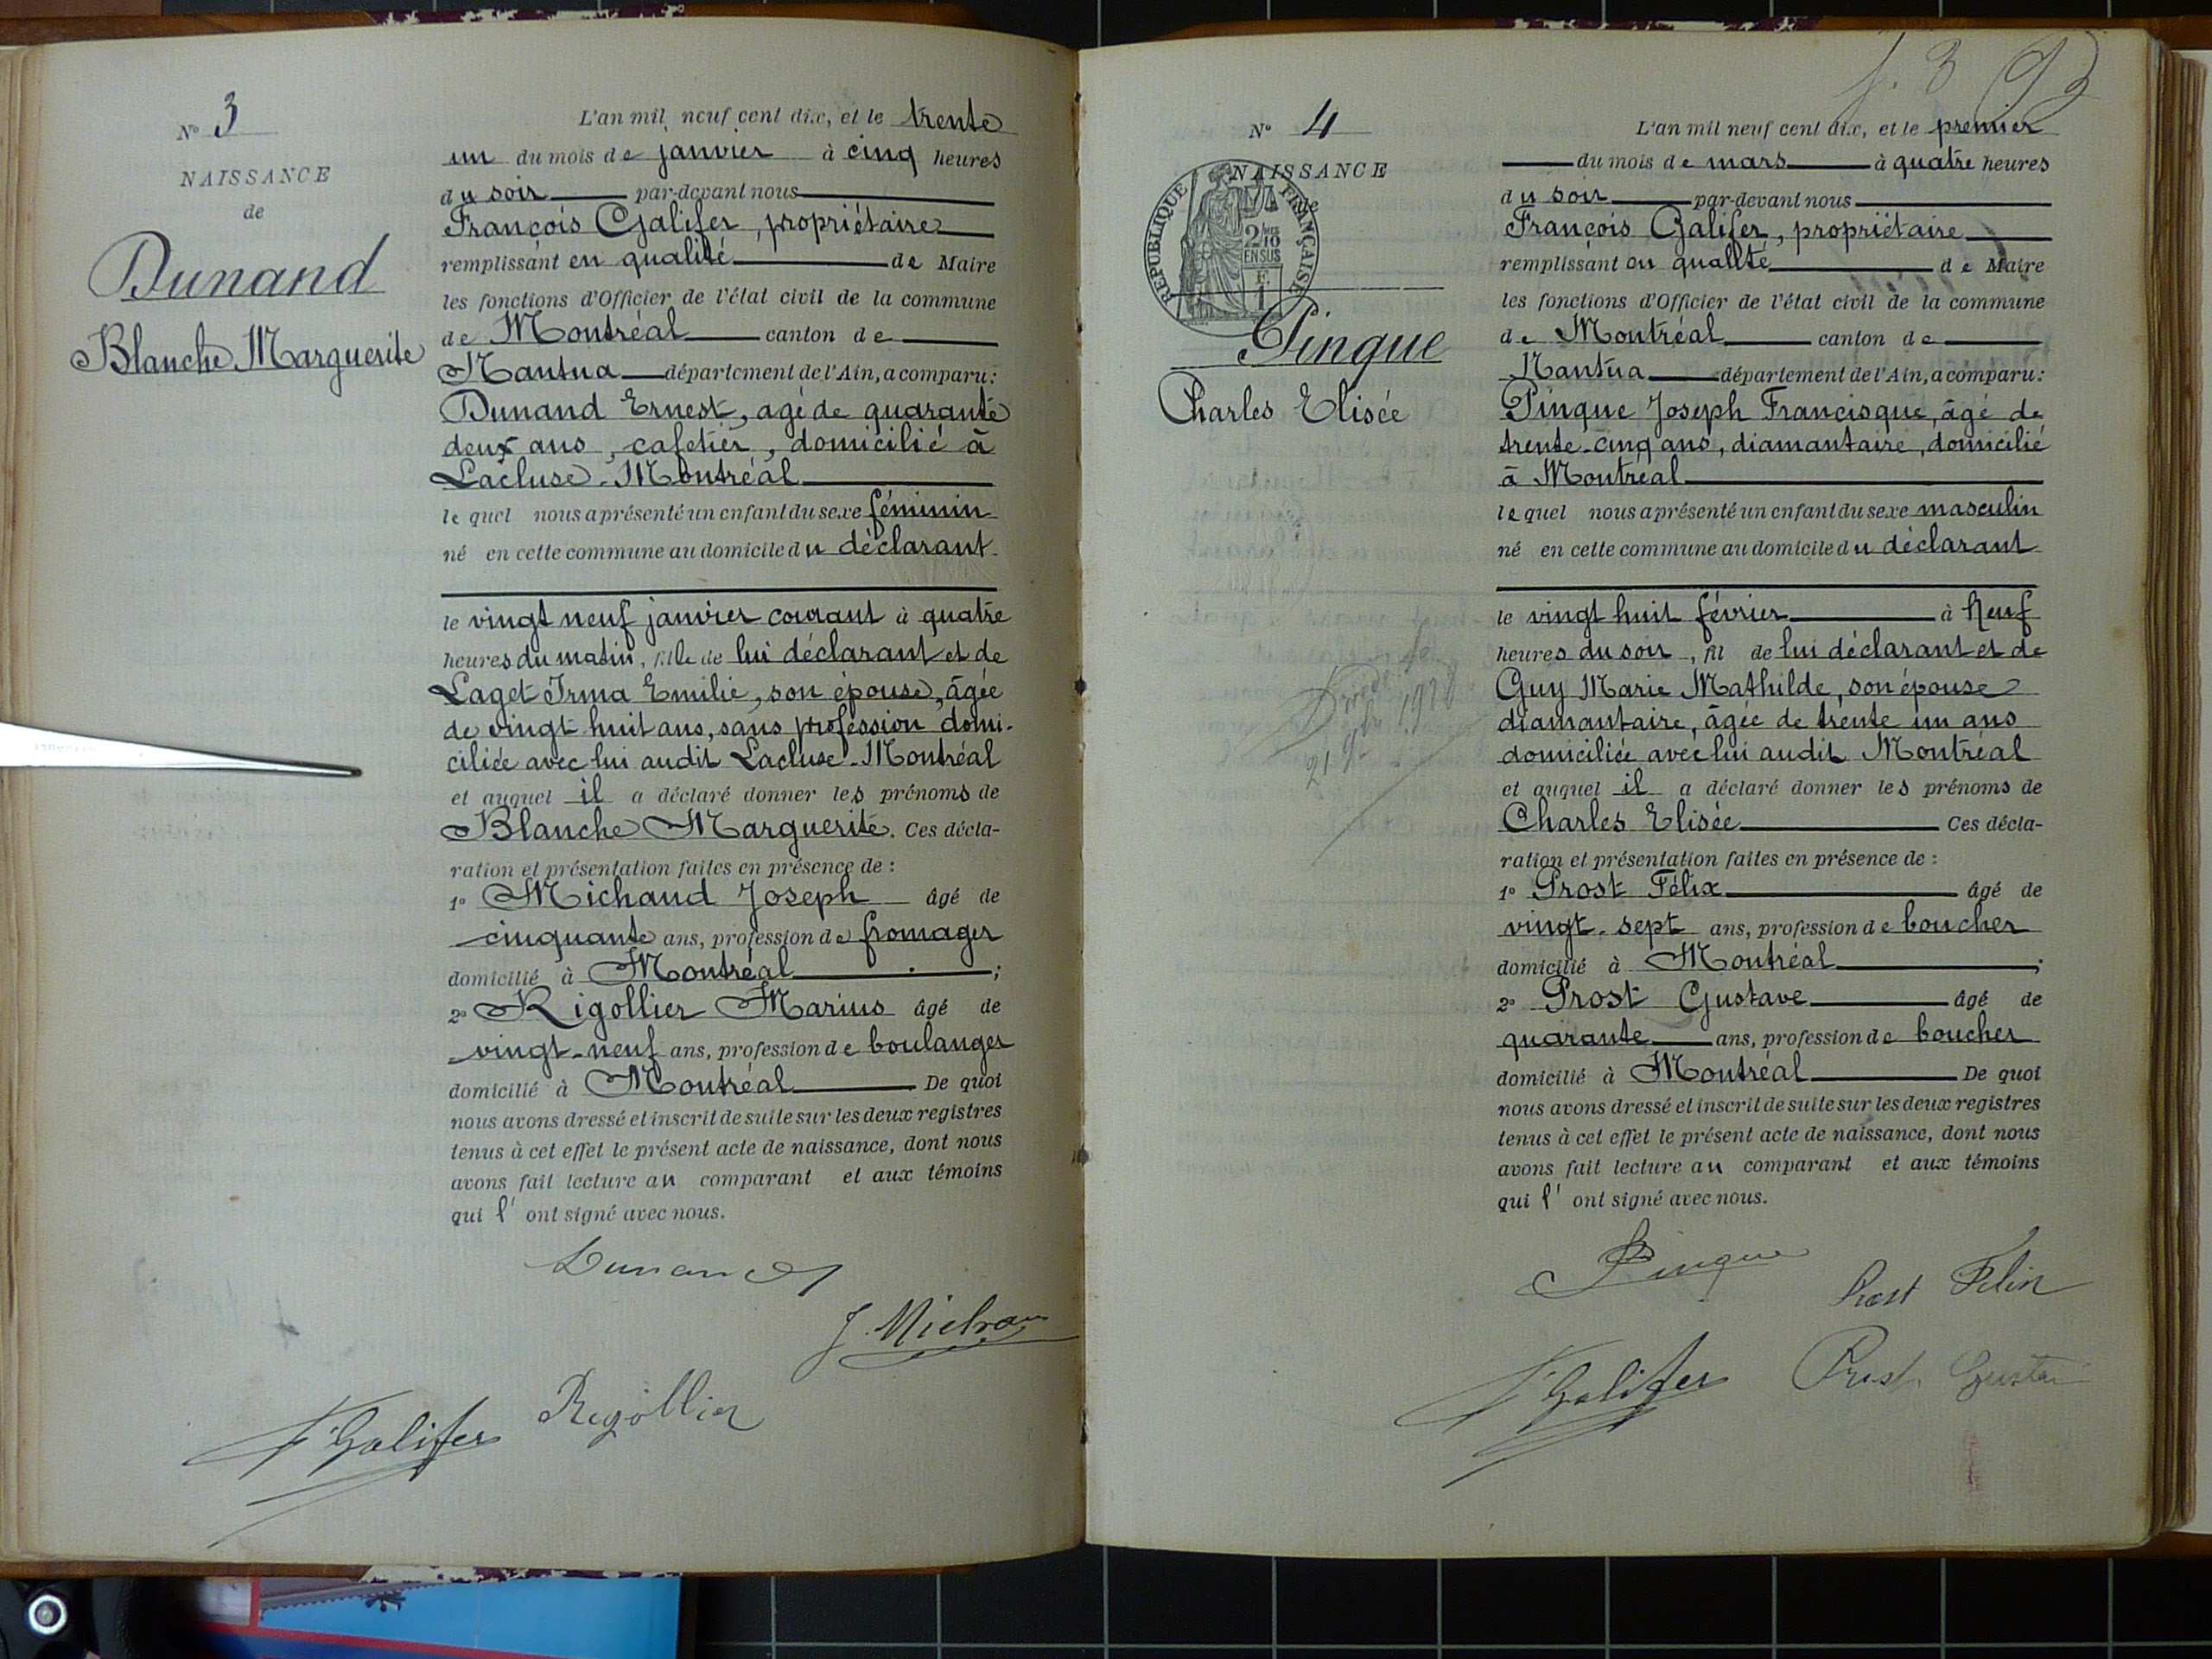 N° 3
NAISSANCE
de
Dunand
Blanche Marguerite
L'an mil neuf cent dix, et le trente
un du mois de janvier à cinq heures
du soir par-devant nous
François Galifer, propriétaire
remplissant en qualité de Maire
les fonctions d'Officier de l'état civil de la commune
de Montréal canton de
Nantua département de l'Ain, a comparu:
Dunand Ernest, agé de quarante
deux ans, cafetier, domicilié à
Lacluse-Montréal
le quel nous a présenté un enfant du sexe féminin
né en cette commune au domicile du déclarant
le vingt neuf janvier courant à quatre
heures du matin, fille de lui déclarant et de
Laget Irma Emilie, son épouse, âgée
de vingt huit ans, sans profession domi-
ciliée avec lui audit Lacluse-Montréal
et auquel il a déclaré donner les prénoms de
Blanche Marguerite. Ces décla-
ration et présentation faites en présence de :
1° Michaud Joseph âgé de
cinquante ans, profession de fromager
domicilié à Montréal ;
2° Rigollier Marius âgé de
vingt-neuf ans, profession de boulanger
domicilié à Montréal De quoi
nous avons dressé et inscrit de suite sur les deux registres
tenus à cet effet le présent acte de naissance, dont nous
avons fait lecture au comparant et aux témoins
qui l' ont signé avec nous.
Dunand
J. Michaud
Rigollier
F Galifer
N° 4
NAISSANCE
de
RÉPUBLIQUE FRANÇAISE
2/10
EN SUS
Pinque
Charles Elisée
L'an mil neuf cent dix, et le premier
du mois de mars à quatre heures
du soir par-devant nous
François Galifer, propriétaire
remplissant en qualité de Maire
les fonctions d'Officier de l'état civil de la commune
de Montréal canton de
Nantua département de l'Ain, a comparu:
Pinque Joseph Francisque, âgé de
trente-cinq ans, diamantaire, domicilié
à Montréal
le quel nous a présenté un enfant du sexe masculin
né en cette commune au domicile du déclarant
le vingt huit février à neuf
heures du soir, fil de lui déclarant et de
Guy Marie Mathilde, son épouse
diamantaire, âgée de trente un ans
domiciliée avec lui audit Montréal
et auquel il a déclaré donner les prénoms de
Charles Elisée Ces décla-
ration et présentation faites en présence de :
1° Prost Félix âgé de
vingt-sept ans, profession de boucher
domicilié à Montréal ;
2° Prost Gustave âgé de
quarante ans, profession de boucher
domicilié à Montréal De quoi
nous avons dressé et inscrit de suite sur les deux registres
tenus à cet effet le présent acte de naissance, dont nous
avons fait lecture au comparant et aux témoins
qui l' ont signé avec nous.
Pinque
Prost Félix
F Galifer
Prost Gustave